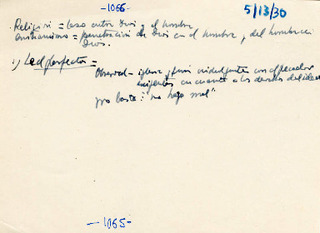 -1066-
5/13/30
Religión = lazo entre Dios y el hombre
cristianismo = penetración de Dios en el hombre, del hombre en
Dios.
1) Led perfectos =
Observad - iglesia y fieles indulgentes con el pecador
exigentes en cuanto a los deseos del ideal
¡no basta: "no hago mal"
-1065-